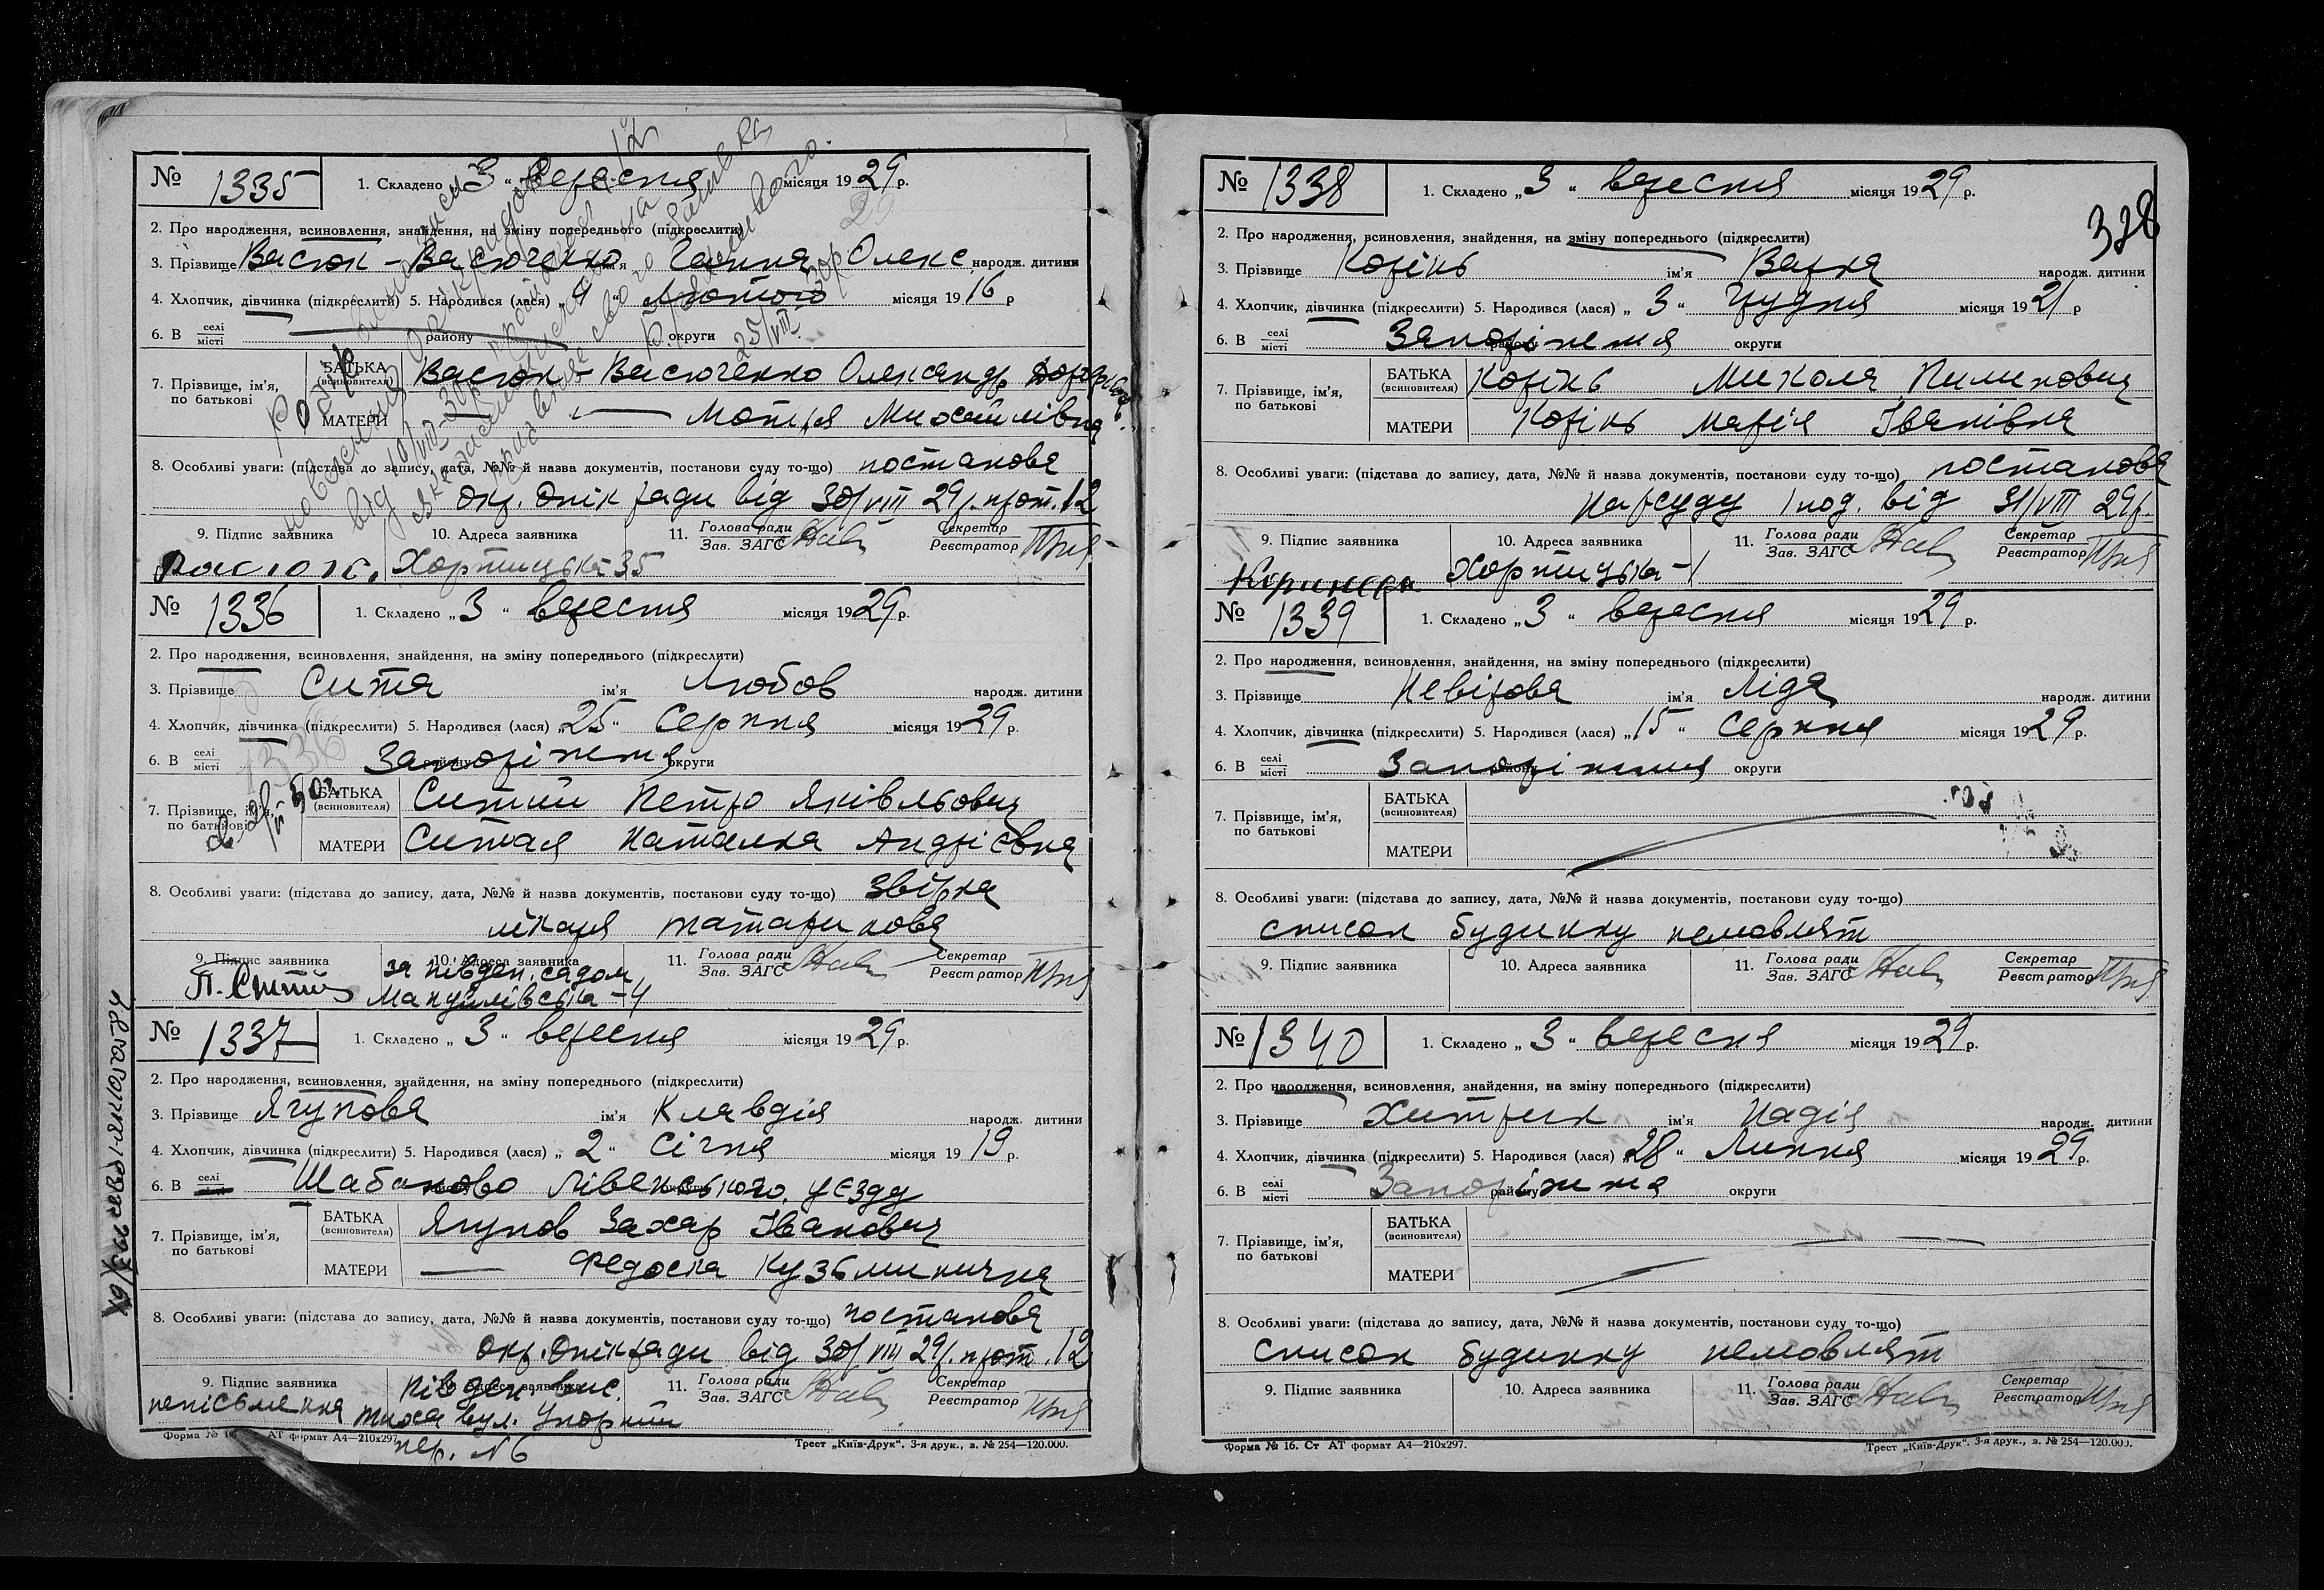 № 1335 1. Складено „3“ вересня місяця 1929 р.
2. Про народження, всиновлення, знайдення, на зміну попереднього (підкреслити)
3. Прізвище Васюк - Васюченко ім'я Ганна Олекс. народж. дитини
4. Хлопчик, дівчинка (підкреслити) 5. Народився (лася) „ “ Лютого місяця 1916 р
6. В селі місті району округи
7. Прізвище, ім'я, по батькові
БАТЬКА (всиновителя) Васюк - Васюченко Олександр
МАТЕРИ — Мотря Михайлівна
8. Особливі уваги: (підстава до запису, дата, №№ й назва документів, постанови суду то-що) постанова
окр. опік ради від 30/VIII 29р. прот. 12
9. Підпис заявника 10. Адреса заявника 11. Голова ради Зав. ЗАГС Секретар Реєстратор
Васюк. Хортицька 35
№ 1336 1. Складено „3“ вересня місяця 1929 р.
2. Про народження, всиновлення, знайдення, на зміну попереднього (підкреслити)
3. Прізвище Сита ім'я Любов народж. дитини
4. Хлопчик, дівчинка (підкреслити) 5. Народився (лася) „25“ Серпня місяця 1929 р.
6. В селі місті Запоріжжя району округи
7. Прізвище, ім'я, по батькові
БАТЬКА (всиновителя) Ситий Петро Яківльович
МАТЕРИ Ситая Наталка Андрієвна
8. Особливі уваги: (підстава до запису, дата, №№ й назва документів, постанови суду то-що) Звірка
лікаря Татаринова
9. Підпис заявника 10. Адреса заявника 11. Голова ради Зав. ЗАГС Секретар Реєстратор
П. Ситий за півден. садом
Мануйлівська - 4
№ 1337 1. Складено „3“ вересня місяця 1929 р.
2. Про народження, всиновлення, знайдення, на зміну попереднього (підкреслити)
3. Прізвище Ягупова ім'я Клавдія народж. дитини
4. Хлопчик, дівчинка (підкреслити) 5. Народився (лася) „2“ Січня місяця 1919 р.
6. В селі місті Шабаново Лівенського уєзду району округи
7. Прізвище, ім'я, по батькові
БАТЬКА (всиновителя) Ягупов Захар Іванович
МАТЕРИ — Федосіа Кузьминична
8. Особливі уваги: (підстава до запису, дата, №№ й назва документів, постанови суду то-що) постанова
окр. опік ради від 30/VIII 29р. прот. 12
9. Підпис заявника 10. Адреса заявника 11. Голова ради Зав. ЗАГС Секретар Реєстратор
непісьменна Півден. вис.
тиха вул. Упорний
пер. N 6
Форма № 16 АТ формат А4—210х297. Трест „Київ-Друк“. 3-я друк., з. № 254—120.000.
328
№ 1338 1. Складено „3“ вересня місяця 1929 р.
2. Про народження, всиновлення, знайдення, на зміну попереднього (підкреслити)
3. Прізвище Корінь ім'я Варка народж. дитини
4. Хлопчик, дівчинка (підкреслити) 5. Народився (лася) „3“ Грудня місяця 1921 р
6. В селі місті Запоріжжя району округи
7. Прізвище, ім'я, по батькові
БАТЬКА (всиновителя) Корінь Микола Пилипович
МАТЕРИ Корінь Марія Іванівна
8. Особливі уваги: (підстава до запису, дата, №№ й назва документів, постанови суду то-що) постанова
Нарсуду 1 под. від 31/VIII 29р.
9. Підпис заявника 10. Адреса заявника 11. Голова ради Зав. ЗАГС Секретар Реєстратор
Хортицька - 1
№ 1339 1. Складено „3“ вересня місяця 1929 р.
2. Про народження, всиновлення, знайдення, на зміну попереднього (підкреслити)
3. Прізвище Невірова ім'я Ліда народж. дитини
4. Хлопчик, дівчинка (підкреслити) 5. Народився (лася) „15“ Серпня місяця 1929 р.
6. В селі місті Запоріжжя району округи
7. Прізвище, ім'я, по батькові
БАТЬКА (всиновителя)
МАТЕРИ
8. Особливі уваги: (підстава до запису, дата, №№ й назва документів, постанови суду то-що)
список будинку немовлят
9. Підпис заявника 10. Адреса заявника 11. Голова ради Зав. ЗАГС Секретар Реєстратор
№ 1340 1. Складено „3“ вересня місяця 1929 р.
2. Про народження, всиновлення, знайдення, на зміну попереднього (підкреслити)
3. Прізвище Хитрик ім'я Надія народж. дитини
4. Хлопчик, дівчинка (підкреслити) 5. Народився (лася) „28“ Липня місяця 1929 р.
6. В селі місті Запоріжжя району округи
7. Прізвище, ім'я, по батькові
БАТЬКА (всиновителя)
МАТЕРИ
8. Особливі уваги: (підстава до запису, дата, №№ й назва документів, постанови суду то-що)
список будинку немовлят
9. Підпис заявника 10. Адреса заявника 11. Голова ради Зав. ЗАГС Секретар Реєстратор
Форма № 16. Ст АТ формат А4—210х297. Трест „Київ-Друк“. 3-я друк., з. № 254—120.000.